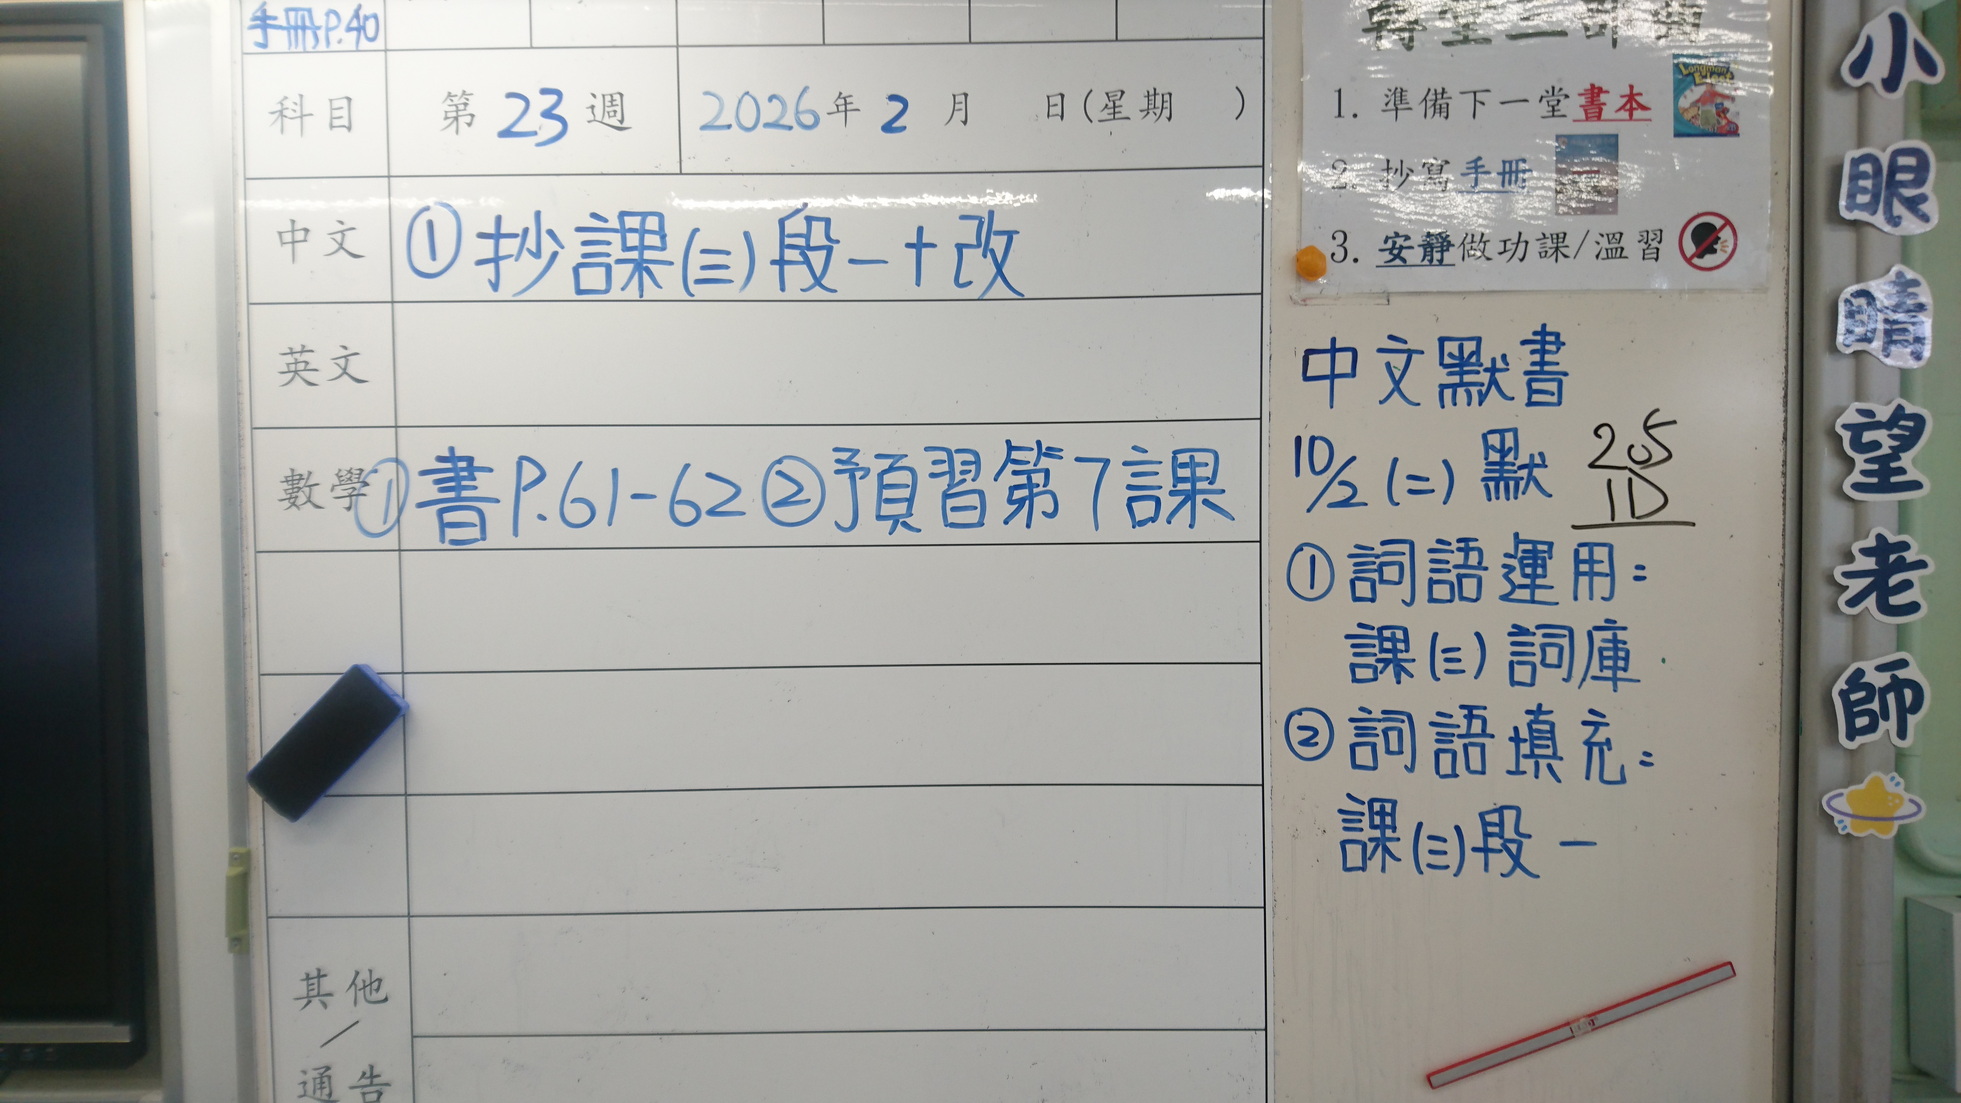 手冊P.40
科目 第23週 2026年2月 日(星期 )
中文 ①抄課(三)段一+改
英文
數學 ①書P.61-62②預習第7課
其他
/
通告
1. 準備下一堂書本
2. 抄寫手冊
3. 安靜做功課/溫習
中文默書
10/2(二)默
①詞語運用:
課(三)詞庫
②詞語填充:
課(三)段一
小眼睛望老師